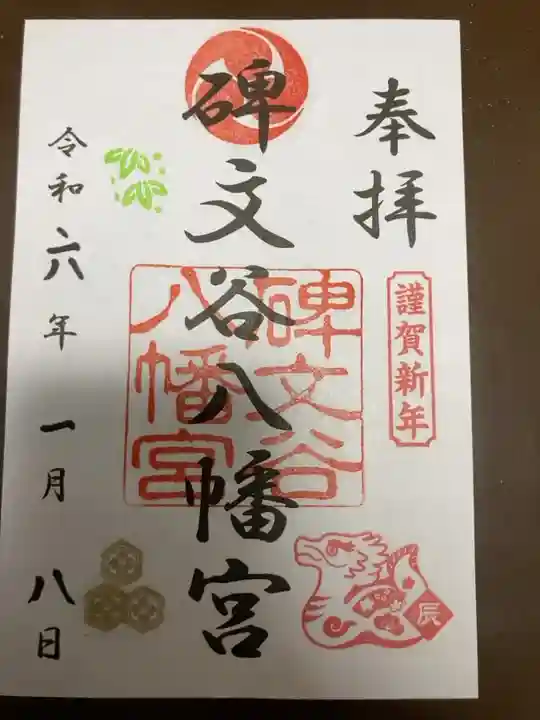 奉拝
謹賀新年
辰
碑文谷八幡宮
碑文谷
八幡宮
令和六年一月八日